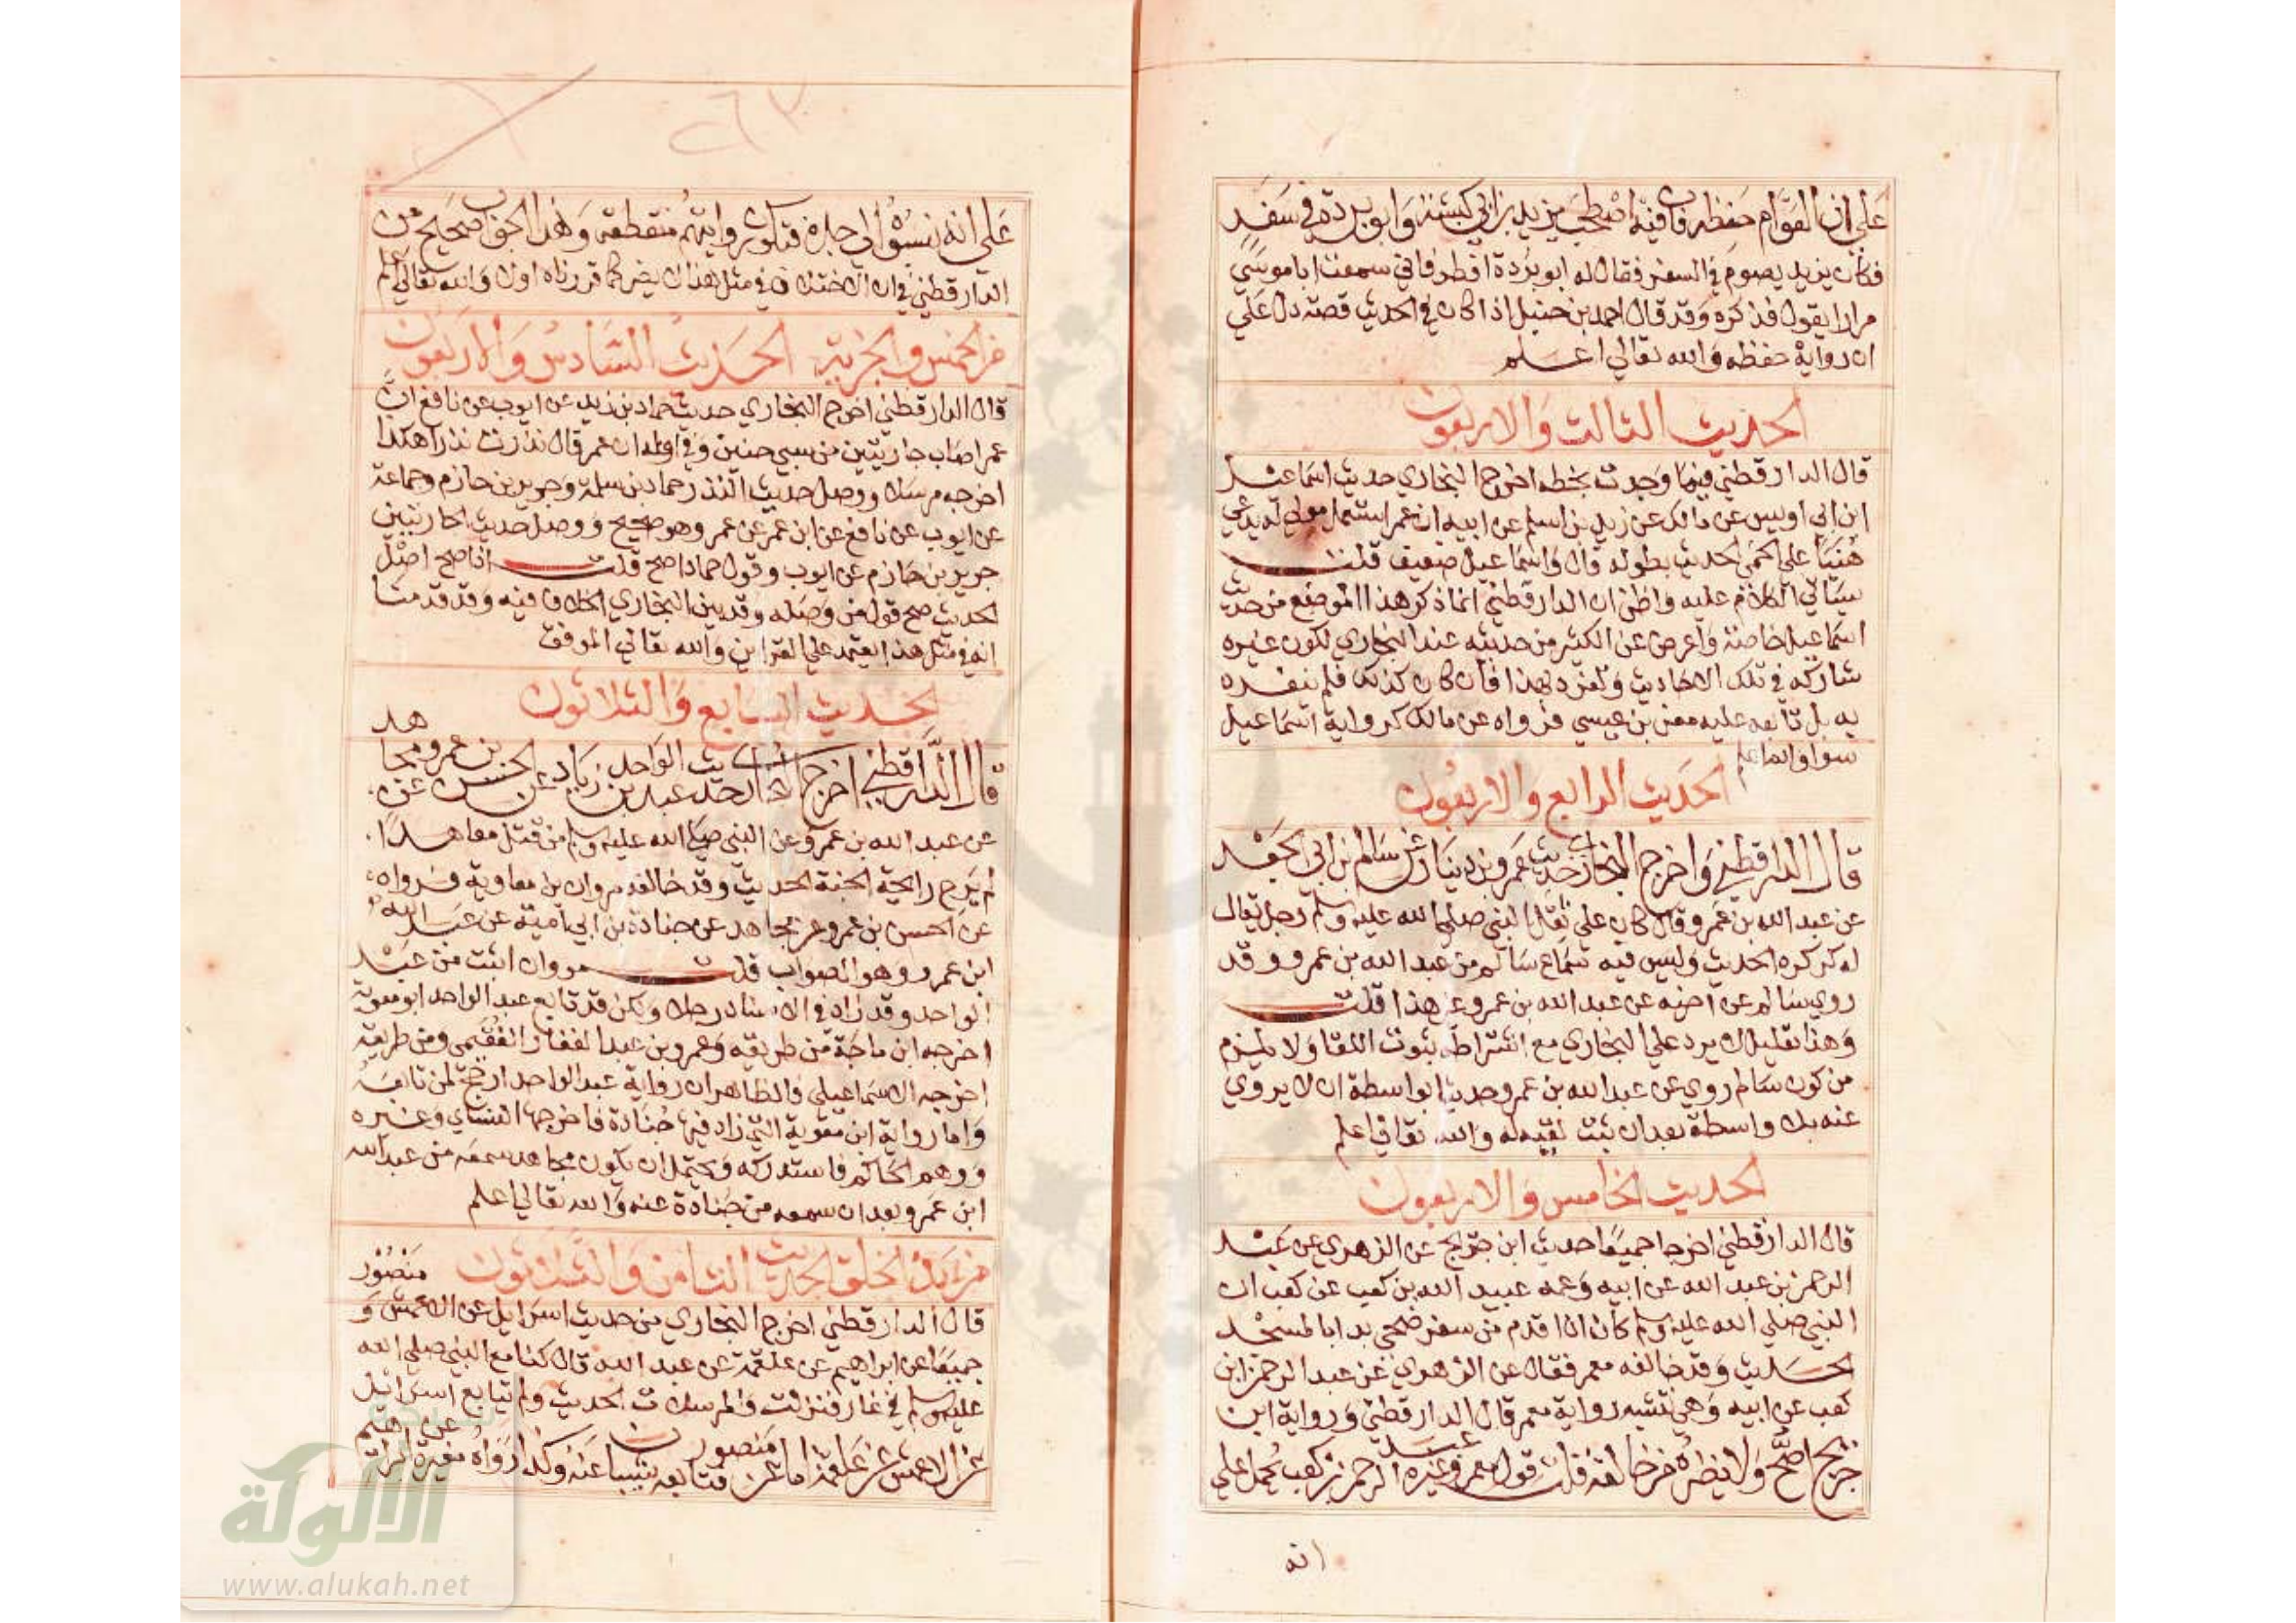 علي ان العوام حفظه فان فيه اصطحب يزيد بن ابي كبشة وابو بردة في سفر
فكان يزيد يصوم في السفر فقال له ابو بردة افطر فاني سمعت ابا موسي
مرارا يقول فذكره وقد قال احمد بن حنبل اذا كان في الحديث قصة دل علي
ان رواية حفظه والله تعالي اعلم
الحديث الثالث والاربعون
قال الدارقطني فيما وجدت بخطه اخرج البخاري حديث اسماعيل
ابن ابي اويس عن مالك عن زيد بن اسلم عن ابيه ان عمر استعمل مولي له يدعي
هنيا علي الحمي الحديث بطوله قال واسماعيل ضعيف قلت
سياتي الكلام عليه واظن ان الدارقطني انما ذكر هذا الموضع من حديث
اسماعيل خاصة واعرض عن الكثير من حديثه عند البخاري لكون غيره
شاركه في تلك الاحاديث وتفرد بهذا فان كان كذلك فلم ينفرد
به بل تابعه عليه معن بن عيسي فرواه عن مالك كرواية اسماعيل
سوا والله اعلم
الحديث الرابع والاربعون
قال الدارقطني واخرج البخاري حديث عمرو بن دينار عن سالم بن ابي الجعد
عن عبد الله بن عمرو قال كان علي ثقل النبي صلي الله عليه وسلم رجل يقال
له كركره الحديث وليس فيه سماع سالم من عبد الله بن عمرو وقد
روي سالم عن اخيه عن عبد الله بن عمرو غير هذا قلت
وهذا تعليل لا يرد علي البخاري مع اشتراطه ثبوت اللقا ولا يلزم
من كون سالم روي عن عبد الله بن عمرو حديثا بواسطة ان لا يروي
عنه بلا واسطة بعد ان ثبت لقيه له والله تعالي اعلم
الحديث الخامس والاربعون
قال الدارقطني اخرجا جميعا حديث ابن جريج عن الزهري عن عبد
الرحمن بن عبد الله عن ابيه وعمه عبيد الله بن كعب عن كعب ان
النبي صلي الله عليه وسلم كان اذا قدم من سفر ضحي بدا بالمسجد
الحديث وقد خالفه معمر فقال عن الزهري عن عبد الرحمن ابن
كعب عن ابيه وهي تشبه رواية معمر قال الدارقطني ورواية ابن
جريج اصح ولا يضره من خالفه قلت قول معمر وغيره عبد الرحمن بن كعب يحمل علي
انه
علي انه نسبه الي جده فتكون روايتهم منقطعة وهذا الجواب صحيح من
الدارقطني في ان الاختلاف في مثل هذا لا يضر كما قررناه اولا والله تعالي اعلم
من الخمس والجزية الحديث السادس والاربعون
قال الدارقطني اخرج البخاري حديث حماد بن زيد عن ايوب عن نافع ان
عمر اصاب جاريتين من سبي حنين وفي اوله ان عمر قال نذرت نذرا هكذا
اخرجه مرسلا ووصل حديث النذر حماد بن سلمة وجرير بن حازم وجماعة
عن ايوب عن نافع عن ابن عمر عن عمر وهو صحيح ووصل حديث الجاريتين
جرير بن حازم عن ايوب وقول حماد اصح قلت اذا صح اصل
الحديث صح قول من وصله وقد بين البخاري الخلاف فيه وقد قدمنا
انه في مثل هذا يعتمد علي القراين والله تعالي الموفق
الحديث السابع والثلاثون
هد
قال الدارقطني اخرج حديث عبد الواحد بن زياد عن الحسن بن عمرو مجا عن
عن عبد الله بن عمرو عن النبي صلي الله عليه وسلم من قتل معاهدا
لم يرح رايحة الجنة الحديث وقد خالفه مروان بن معاوية فرواه
عن الحسن بن عمرو عن مجاهد عن جنادة بن ابي امية عن عبد الله
ابن عمرو وهو الصواب قلت مروان اثبت من عبد
الواحد وقد زاد في الاسناد رجلا ولكن قد تابع عبد الواحد ابو معوية
اخرجه ابن ماجة من طريقه وعمرو بن عبد الغفار الفقيمي ومن طريقه
اخرجه الاسماعيلي والظاهر ان رواية عبد الواحد ارجح لمن تابعه
واما رواية ابن معوية التي زاد فيها جنادة فاخرجها النساي وغيره
ووهم الحاكم فاستدركه ويحتمل ان يكون مجاهد سمعه من عبد الله
ابن عمرو بعد ان سمعه من جنادة عنه والله تعالي اعلم
من بدء الخلق الحديث الثامن والثلاثون
منصور
قال الدارقطني اخرج البخاري من حديث اسرايل عن الاعمش و
جميعا عن ابراهيم عن علقمة عن عبد الله قال كنا مع النبي صلي الله
عليه وسلم في غار فنزلت والمرسلات الحديث ولم يتابع اسرائيل
عن الاعمش عن علقمة اما عن منصور فتابعه شيبان عنه وكذا رواه مغيرة عن ابراهيم
الألوكة
www.alukah.net